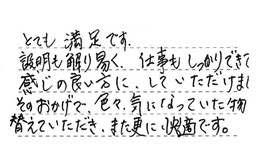 とても 満足です.
説明も解り易く、仕事もしっかりできて
感じの良い方に、していただけま
そのおかげで、色々、気になっていた物
替えていただき、また更に快適です。